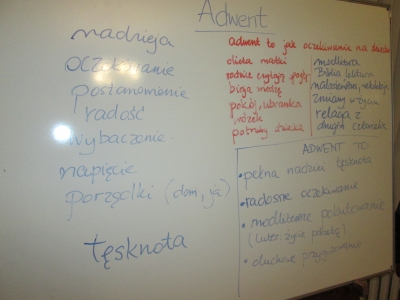 Adwent
nadzieja
oczekiwanie
postanowienie
radość
wybaczenie
napięcie
porządki (dom, ja)
tęsknota
adwent to jak oczekiwanie na dziecko
dieta matki
rodzice czytają
biorą
pokój, ubranka
wózek
potrzeby dziecka
modlitwa
Biblia lektura
nabożeństwa, rekolekcje
zmiany w życiu
relacja z
drugim człowiekiem
ADWENT TO:
• pełna nadziei tęsknota
• radosne oczekiwanie
• modlitewne pokutowanie
(Luter: życie pokutą)
• duchowe przygotowanie